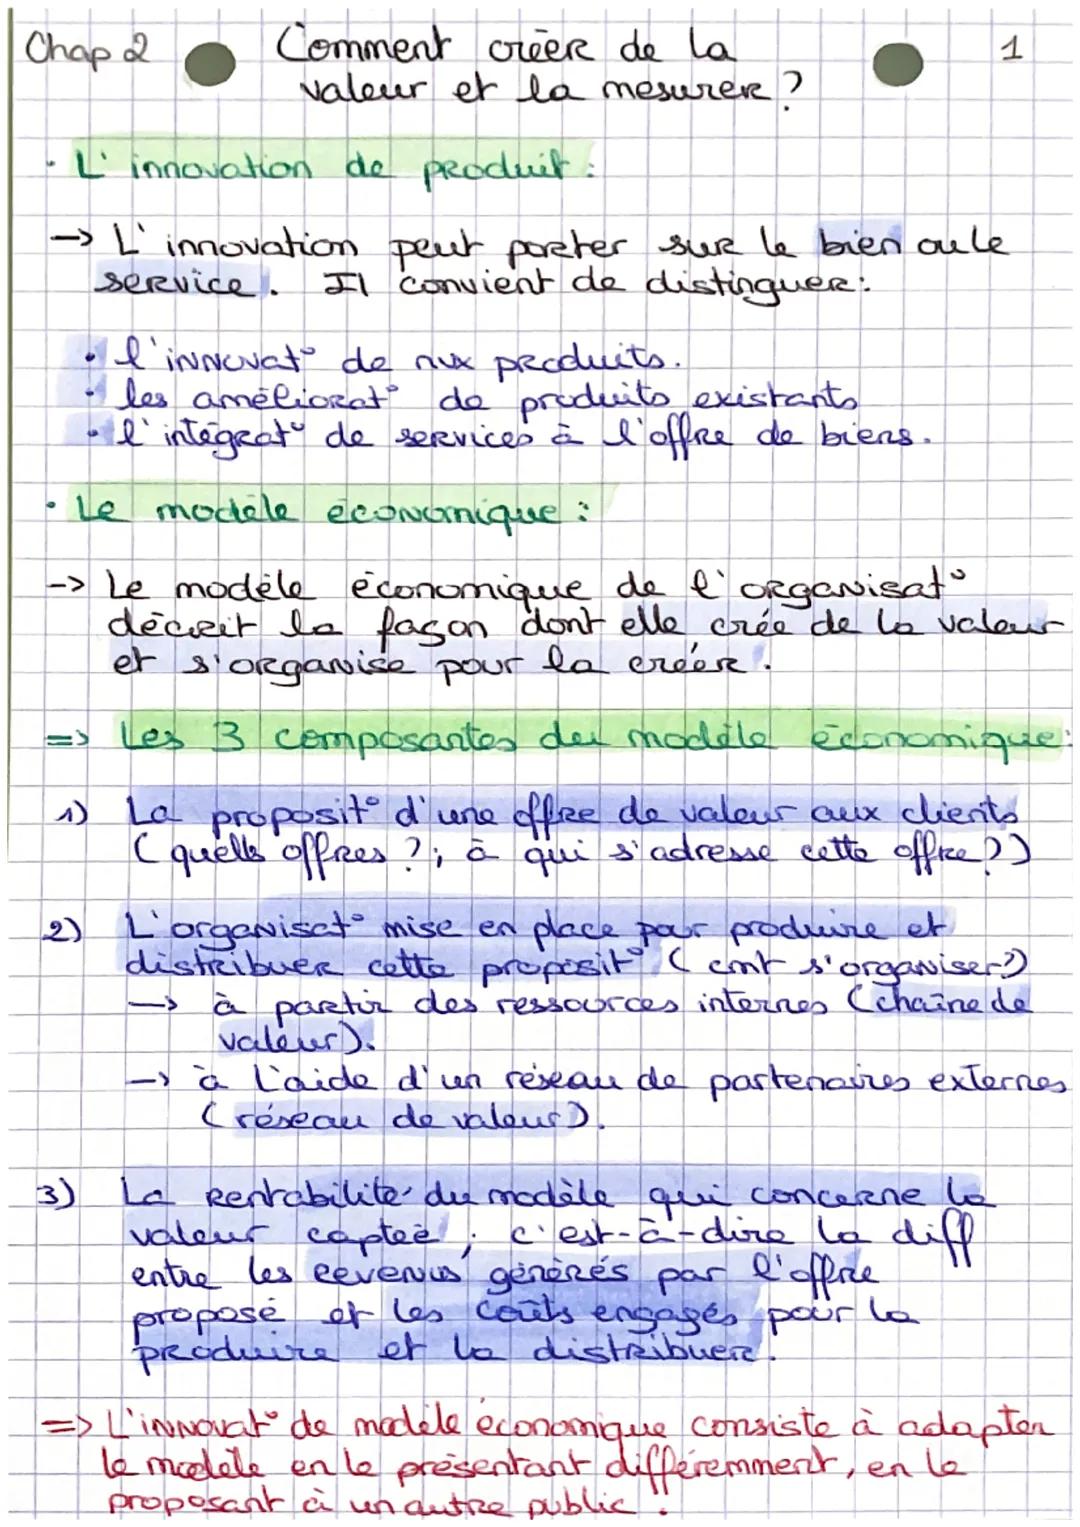 Chap 2 Comment créer de la 1
valeur et la mesurer ?
• L'innovation de produit :
-> L'innovation peut porter sur le bien ou le
service. Il convient de distinguer :
• l'innovat° de nvx produits.
• les améliorat° de produits existants
• l'intégrat° de services à l'offre de biens.
• Le modèle économique :
-> Le modèle économique de l'organisat°
décrit la façon dont elle crée de la valeur
et s'organise pour la créer.
=> Les 3 composantes du modèle économique :
1) La proposit° d'une offre de valeur aux clients
(quells offres ? ; à qui s'adresse cette offre ?)
2) L'organisat° mise en place par produire et
distribuer cette proposit° (cmt s'organiser ?)
-> à partir des ressources internes (chaîne de
valeur).
-> à l'aide d'un réseau de partenaires externes
(réseau de valeur).
3) La rentabilité du modèle qui concerne la
valeur captée ; c'est-à-dire la diff
entre les revenus générés par l'offre
proposé et les coûts engagés pour la
produire et la distribuer.
=> L'innovat° de modèle économique consiste à adapter
le modèle en le présentant différemment, en le
proposant à un autre public.